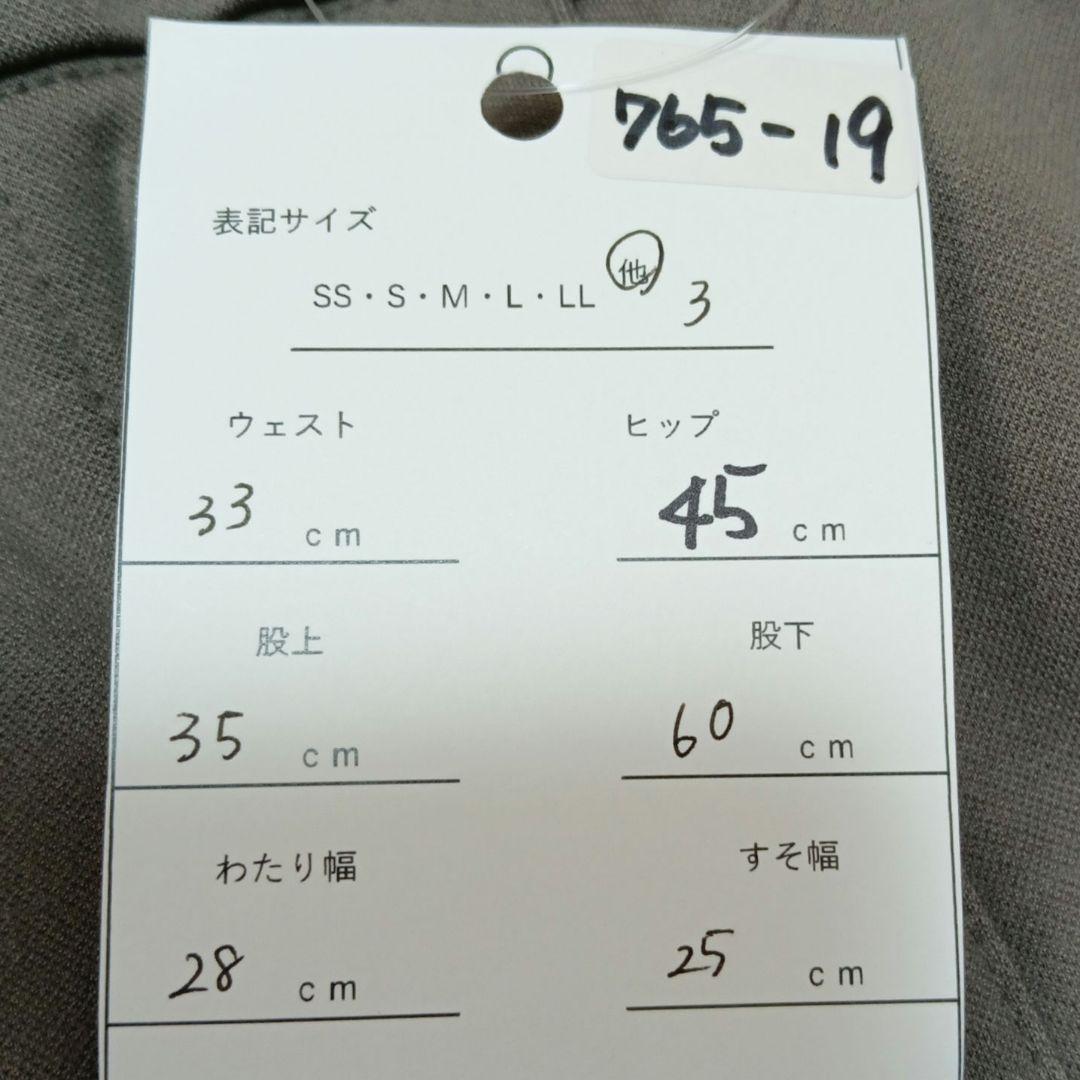 765-19
表記サイズ
SS・S・M・L・LL 他 3
ウェスト ヒップ
33 cm 45 cm
股上 股下
35 cm 60 cm
わたり幅 すそ幅
28 cm 25 cm